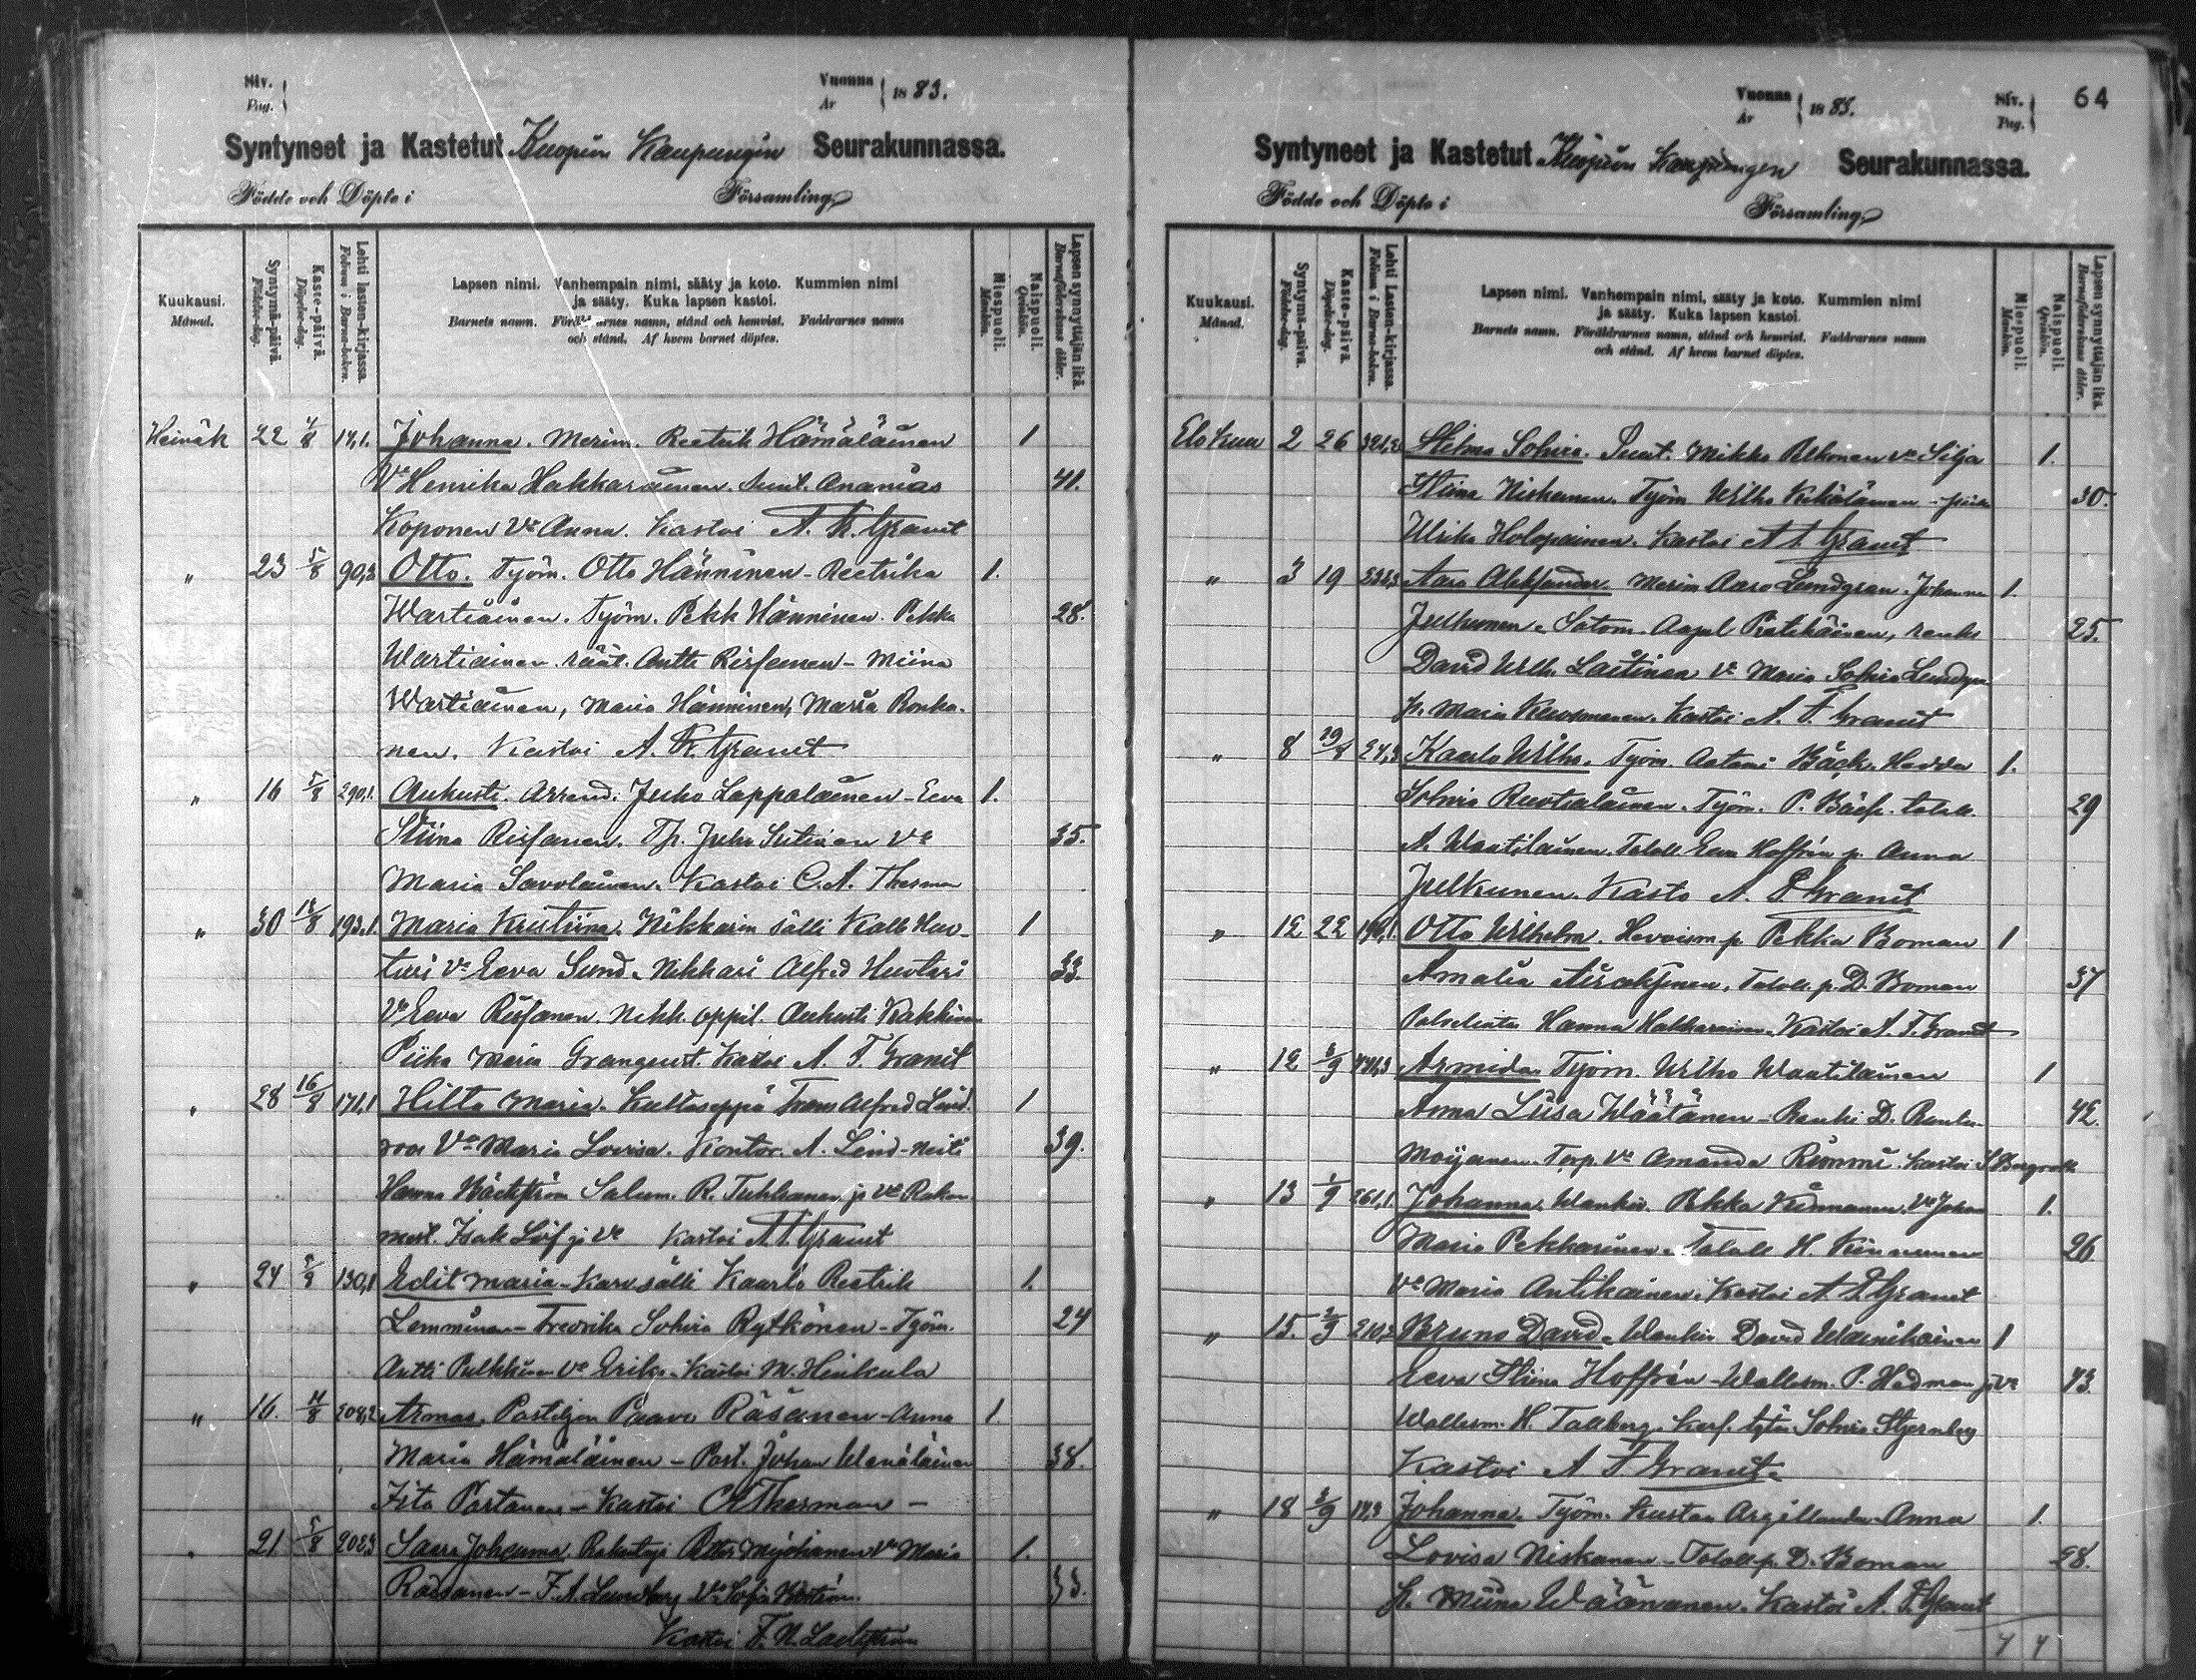 Siv.
Pag.
Vuonna
År
1883.
Syntyneet ja Kastetut Kuopion Kaupungin Seurakunnassa.
Födde och Döpte i Församling
Kuukausi.
Månad.
Syntymä-päivä.
Födelse-dag.
Kaste-päivä.
Döpelse-dag.
Lehti lasten-kirjassa.
Folium i Barna-boken.
Lapsen nimi. Vanhempain nimi, sääty ja koto. Kummien nimi
ja sääty. Kuka lapsen kastoi.
Barnets namn. Föräldrarnes namn, stånd och hemvist. Faddrarnes namn
och stånd. Af hvem barnet döptes.
Miespuoli.
Mankön.
Naispuoli.
Qvinkön.
Lapsen synnyttäjän ikä.
Barnaföderskans ålder.
Heinäk 22 4/8 14,1. Johanna. Merim. Reetrik Hämäläinen 1
Vo Henrika Hakkarainen. Suut. Ananias 41.
Koponen Vo Anna. Kastoi A. F. Granit
" 23 5/8 90,3 Otto. Työm. Otto Hänninen - Reetrika 1.
Wartiainen. Työm. Pekk Hänninen. Pekka 28.
Wartiainen. räät. Antti Rissanen - Miina
Wartiainen, Maria Hänninen, Maria Ronka-
nen. Kastoi A. F. Granit
" 16 5/8 290,1. Aukusti. Arrend. Juho Lappalainen - Eeva 1.
Stiina Rissanen. Th. Juho Sutinen Vo 35.
Maria Savolainen. Kastoi C. A. Therman
" 30 18/8 193,1. Maria Kristiina. Nikkarin sälli Kalle Huo- 1
tari Vo Eeva Sund. Nikkari Alfred Huotari 33.
Vo Eeva Rissanen. Nikk. oppil. Aukusti Kakkinen
Piika Maria Granqvist. Kastoi A. F. Granit
" 28 16/8 171,1 Hilta Maria. Kultaseppä Frans Alfred Lind- 1
roos Vo Maria Lovisa. Kontor. A. Lind - Neiti 39.
Hanna Bäckström Salum. R. Tuhkanen ja Vo Raken
mest. Isak Löf ja Vo Kastoi A. F. Granit
" 24 2/9 130,1 Edit Maria - Karv. sälli Kaarlo Reetrik 1.
Lemminen - Fredrika Sohvia Rytkönen - Työm. 24
Antti Pulkkinen Vo Erika. Kastoi M. Heikula
" 16. 4/8 208,2 Armas. Postiljon Paavo Räsänen - Anna 1.
Maria Hämäläinen - Post. Johan Wenäläinen 38.
Iita Partanen - Kastoi C A Therman -
" 21 5/8 202,3 Saara Johanna. Rakentaja Petter Myöhänen Vo Maria 1.
Räisänen - F. A. Lundberg Vo Sofia 33.
Kastoi F. N. Lackström
64
Siv.
Pag.
Vuonna
År
1883.
Syntyneet ja Kastetut Kuopion Kaupungin Seurakunnassa.
Födde och Döpte i Församling
Kuukausi.
Månad.
Syntymä-päivä.
Födelse-dag.
Kaste-päivä.
Döpelse-dag.
Lehti Lasten-kirjassa.
Folium i Barna-boken.
Lapsen nimi. Vanhempain nimi, sääty ja koto. Kummien nimi
ja sääty. Kuka lapsen kastoi.
Barnets namn. Föräldrarnes namn, stånd och hemvist. Faddrarnes namn
och stånd. Af hvem barnet döptes.
Miespuoli.
Mankön.
Naispuoli.
Qvinkön.
Lapsen synnyttäjän ikä.
Barnaföderskans ålder.
Elo Kuu 2 26 Helma Sohvia. Suut. Mikko Pelkonen vo Silja 1.
Stiina Niskanen. Työm. Wilho Kekäläinen - piika 30.
Ulrika Holopainen. Kastoi A F Granit
" 3 19 232,3 Aaro Aleksander. Merim Aaro Lundgren. Johanna 1.
Julkunen. Satom. Aapel Pietikäinen, renki 25.
David Wilh. Laitinen Vo Maria Sohvia Lundgren
p. Maria Kuosmanen. Kastoi A. F. Granit
" 8 29/8 24,3 Kaarlo Wilho. Työm. Antoni Bäck. Hedda 1.
Sohvia Ruotsalainen. Työm. P. Bäck. talol. 29
A. Waatilainen. Talol. Eeva Hoffrén p. Anna
Julkunen. Kasto A. F Granit
" 12 22 Otto Wilhelm. Hevoism p. Pekka Boman 1
Amalia Airaksinen. Talol. p. D. Boman 37
Palveliatar Hanna Hakkarainen. Kastoi A. F. Granit
" 12 3/9 Armida. Työm. Wilho Waatilainen 1
Anna Liisa Wäätänen - Renki D. Rautu- 42.
Moijanen. Torp. Vo Amanda Rönni. Kastoi S Bergroth
" 13 1/9 261,1. Johanna. Wankiv. Pekka Kinnunen Vo Johan 1.
Maria Pekkarinen. Talol. H. Kinnunen 26
Vo Maria Antikainen. Kastoi A. F Granit
" 15. 2/9 210,2 Bruno David. Wankiv David Wainikainen 1
Eeva Stiina Hoffrén - Wallesm. P. Hedman ja vo 43.
Wallesm. H. Tallberg. Karf. tytär Sohvia Stjernberg
Kastoi A F Granit.
" 18 2/9 14,3 Johanna. Työm. Kustaa Argillander. Anna 1.
Lovisa Niskanen - Talol. p. D. Boman 28.
p. Miina Wäänänen. Kastoi A. F. Granit
4 4